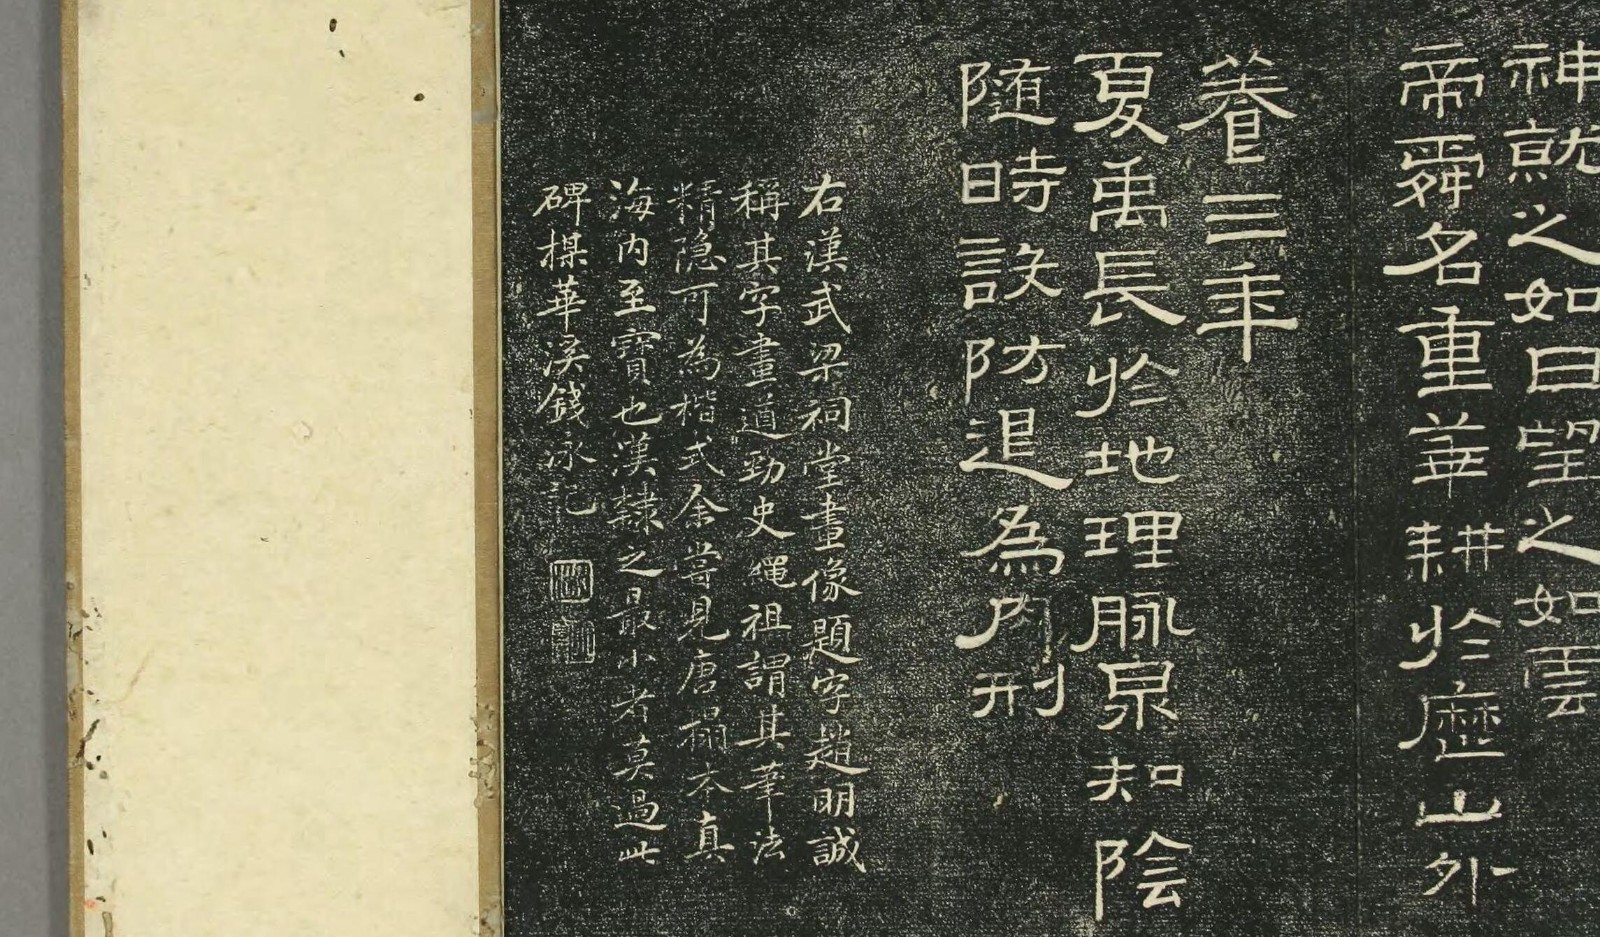 神就之如日望之如雲
帝舜名重華耕於歷山外
養三年
夏禹長於地理脈泉知陰
随時設防退為肉刑
右漢武梁祠堂畫像題字趙明誠
稱其字畫遒勁史繩祖謂其筆法
精隐可為楷式余嘗見唐搨本真
海内至寶也漢隸之最小者莫過此
碑楳華溪錢泳記